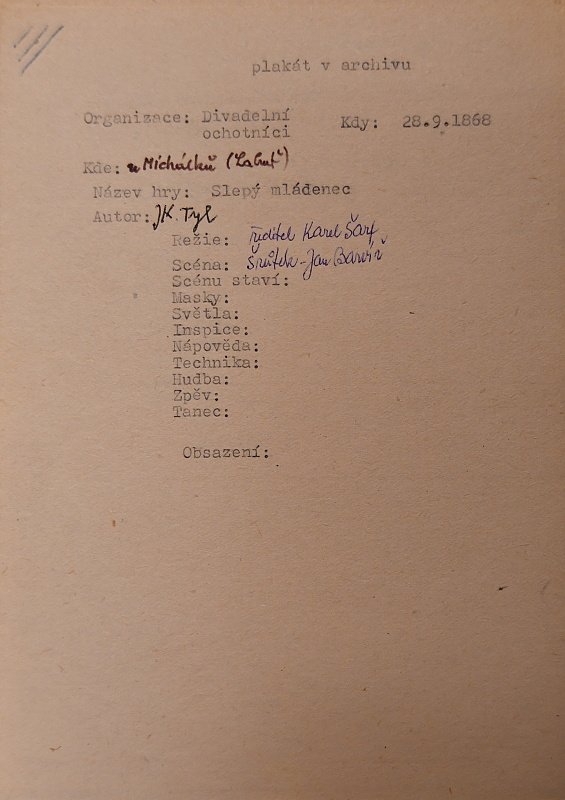 plakát v archivu
Organizace: Divadelní Kdy: 28.9.1868
ochotníci
Kde: u Michálků (Labuť)
Název hry: Slepý mládenec
Autor: JK. Tyl
Režie: ředitel Karel Šarf
Scéna: Jan
Scénu staví:
Masky:
Světla:
Inspice:
Nápověda:
Technika:
Hudba:
Zpěv:
Tanec:
Obsazení: